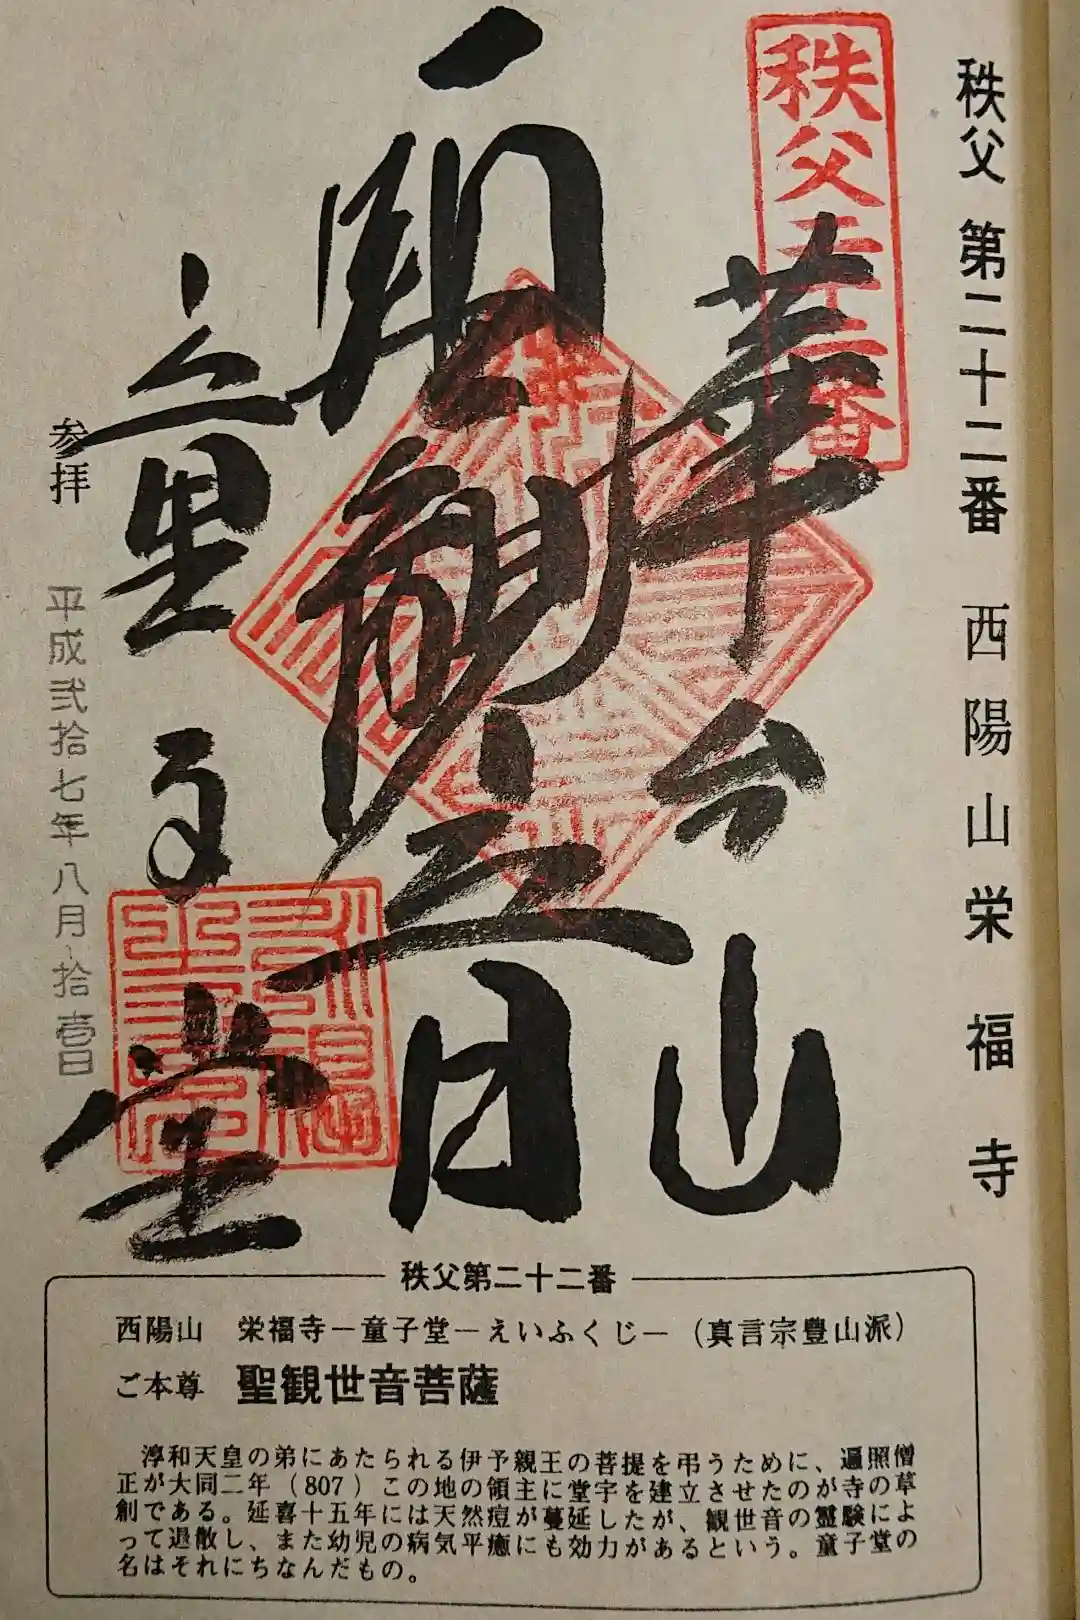 秩父 第二十二番 西陽山栄福寺
秩父二十二番
華台山
聖観世音
童子堂
参拝 平成弐拾七年八月拾壱日
秩父第二十二番
西陽山 栄福寺－童子堂－えいふくじ－（真言宗豊山派）
ご本尊 聖観世音菩薩
淳和天皇の弟にあたられる伊予親王の菩提を弔うために、遍照僧
正が大同二年（807）この地の領主に堂宇を建立させたのが寺の草
創である。延喜十五年には天然痘が蔓延したが、観世音の霊験によ
って退散し、また幼児の病気平癒にも効力があるという。童子堂の
名はそれにちなんだもの。